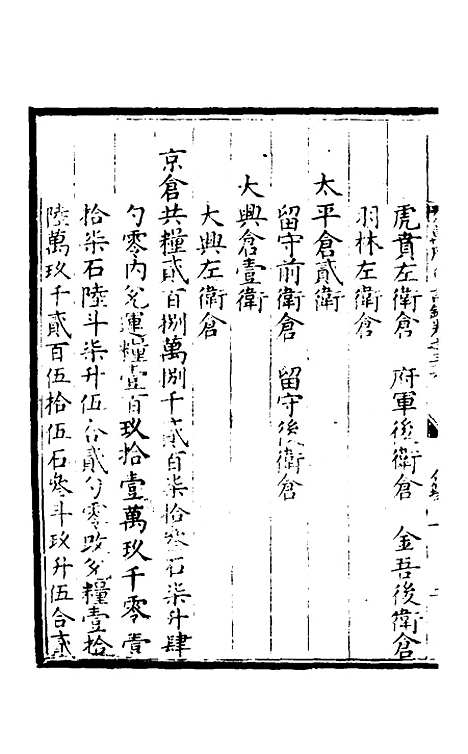 虎賁左衛倉　府軍後衛倉　金吾後衛倉
羽林左衛倉
太平倉貳衛
留守前衛倉　留守後衛倉
大興倉壹衛
大興左衛倉
京倉共糧貳百捌萬捌千貳百柒拾叅石柒升肆
勺零內兌運糧壹百玖拾壹萬玖千零壹
拾柒石陸斗柒升伍合貳勺零改兌糧壹拾
陸萬玖千貳百伍拾伍石叅斗玖升伍合貳